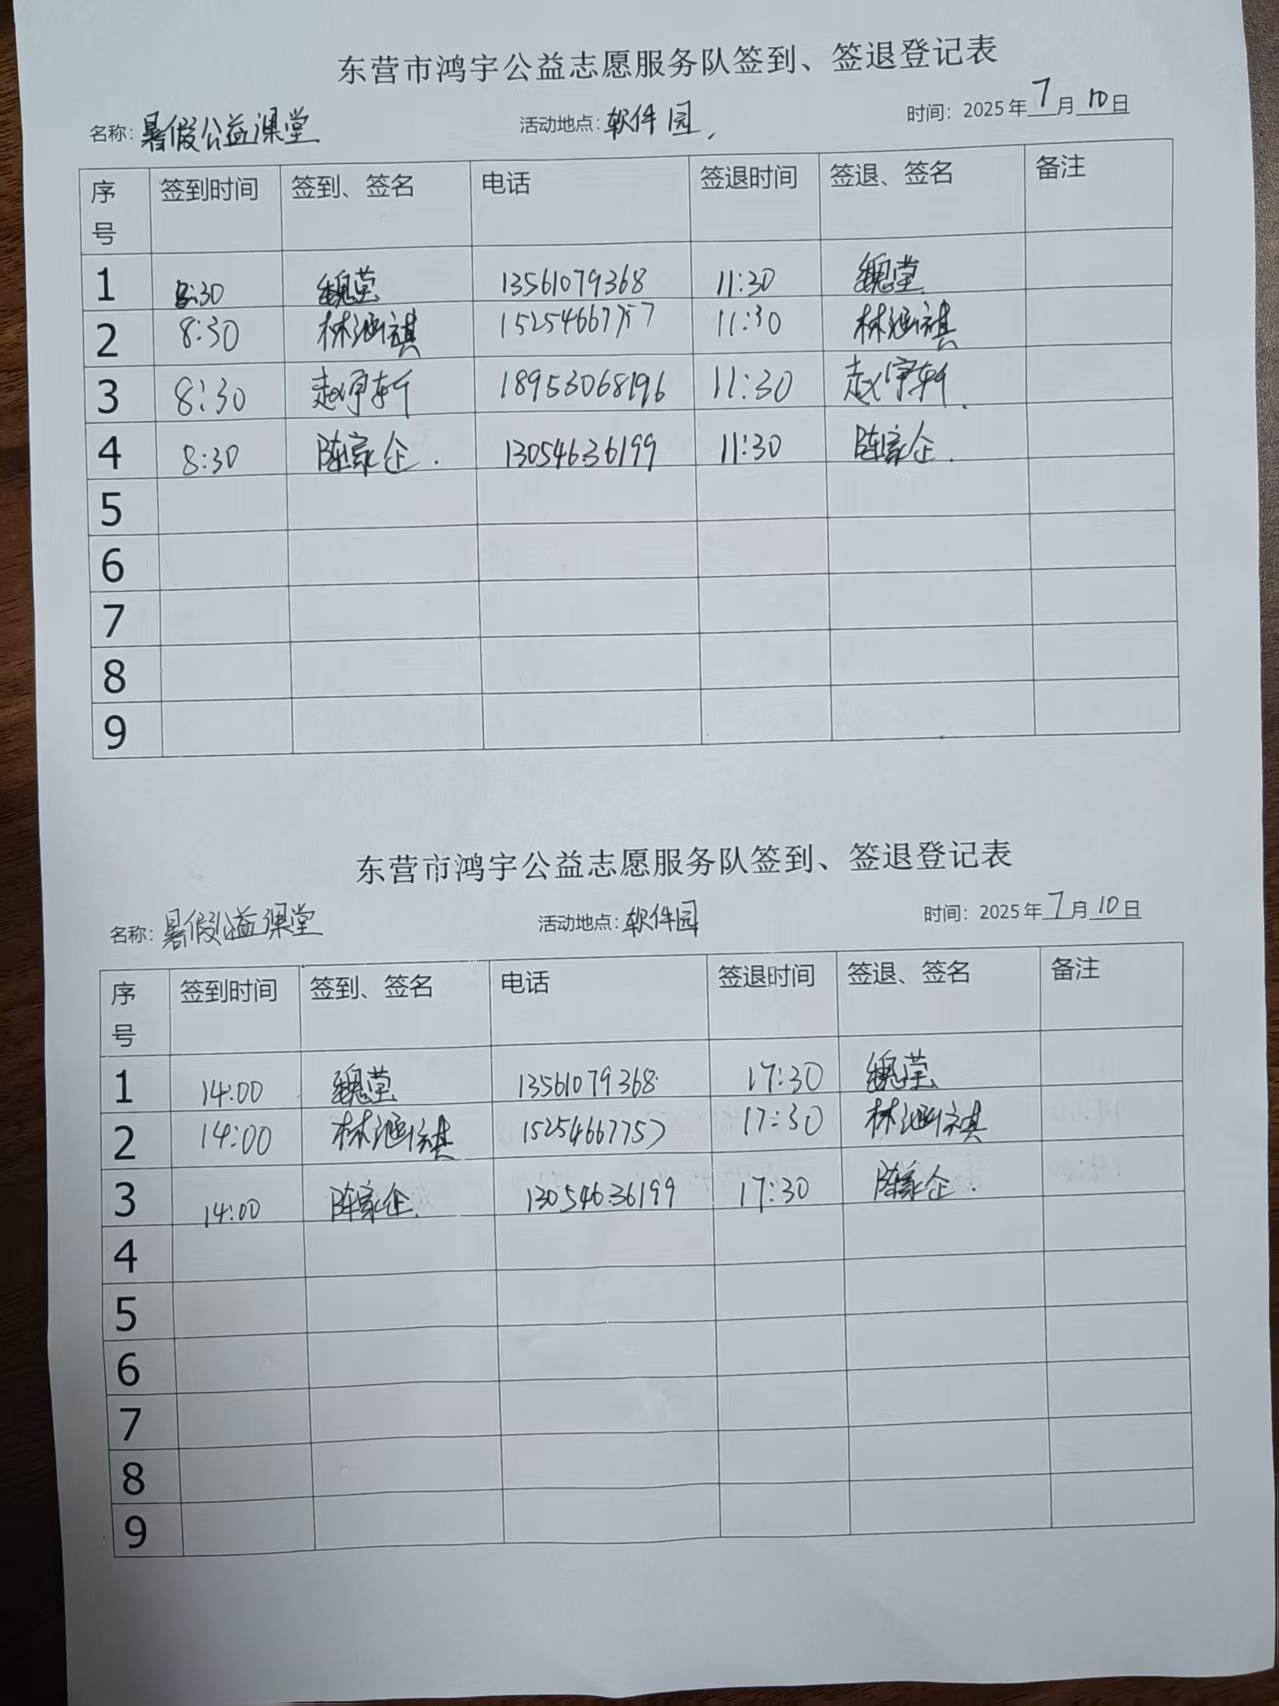 东营市鸿宇公益志愿服务队签到、签退登记表
名称：暑假公益课堂 活动地点：软件园 时间：2025年7月10日
序号 签到时间 签到、签名 电话 签退时间 签退、签名 备注
1 8:30 魏莹 13561079368 11:30 魏莹
2 8:30 林祺 15254667757 11:30 林祺
3 8:30 赵宇轩 18953068196 11:30 赵宇轩
4 8:30 陈家企 13054636199 11:30 陈家企
5
6
7
8
9
东营市鸿宇公益志愿服务队签到、签退登记表
名称：暑假公益课堂 活动地点：软件园 时间：2025年7月10日
序号 签到时间 签到、签名 电话 签退时间 签退、签名 备注
1 14:00 魏莹 13561079368 17:30 魏莹
2 14:00 林祺 15254667757 17:30 林祺
3 14:00 陈家企 13054636199 17:30 陈家企
4
5
6
7
8
9